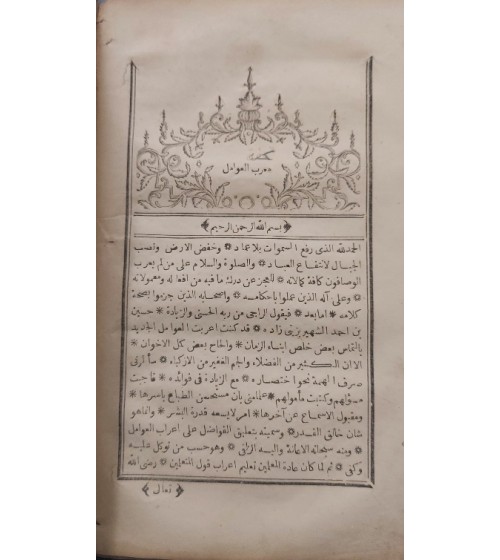 معرب العوامل
بسم الله الرحمن الرحيم
الحمد لله الذى رفع السموات بلا عماد * وخفض الارض ونصب
الجبال لانتفاع العباد * والصلوة والسلام على من لم يعرب
الوصافون كافة كمالاته * للعجز عن درك ما فيه من افعاله ومعمولاته
* وعلى آله الذين عملوا باحكامه * واصحابه الذين جزموا بصحة
كلامه * اما بعد * فيقول الراجى من ربه الحسنى والزيادة * حسين
بن احمد الشهير بزينى زاده * قد كنت اعربت العوامل الجديد
بالتماس بعض خلص ابناء الزمان * والحاح بعض كل الاخوان *
الا ان الكثير من الفضلاء والجم الغفير من الازكياء * سألونى
صرف الهمة نحو اختصاره * مع الزيادة فى فوائده * فاجبت
مسؤلهم وكتبت مأمولهم * علما منى بان مستحسن الطباع باسرها *
ومقبول الاسماع عن آخرها * امر لا يسعه قدرة البشر * وانما هو
شان خالق القدر * وسميته بتعليق الفواضل على اعراب العوامل
* ومنه سبحانه الاعانة واليه الزلفى * وهو حسب من توكل عليه
وكفى * ثم لما كان عادة المعلمين تعليم اعراب قول المتعلمين * رضى الله
تعالى